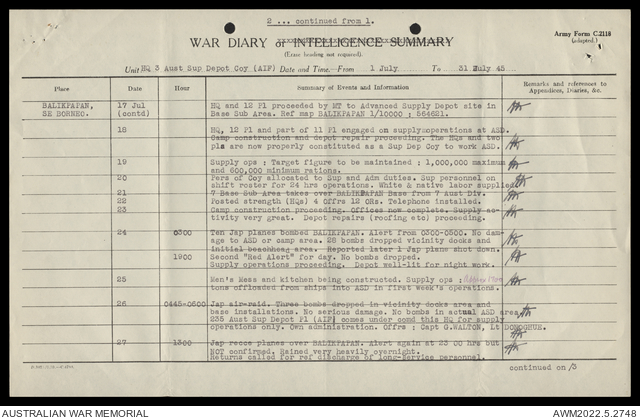 2 ... continued from 1.
WAR DIARY or INTELLIGENCE SUMMARY
Army Form C.2118
(adapted.)
(Erase heading not required).
Unit HQ 3 Aust Sup Depot Coy (AIF) Date and Time—From 1 July To 31 July 45
Place Date Hour Summary of Events and Information Remarks and references to Appendices, Diaries, &c.
BALIKPAPAN, 17 Jul HQ and 12 Pl proceeded by MT to Advanced Supply Depot site in
SE BORNEO. (contd) Base Sub Area. Ref map BALIKPAPAN 1/10000 : 564621.
18 HQ, 12 Pl and part of 11 Pl engaged on supply operations at ASD.
Camp construction and depot repair proceeding. The HQs and two
pls are now properly constituted as a Sup Dep Coy to work ASD.
19 Supply ops : Target figure to be maintained : 1,000,000 maximum
and 600,000 minimum rations.
20 Pers of Coy allocated to Sup and Adm duties. Sup personnel on
shift roster for 24 hrs operations. White & native labor supplied
21 7 Base Sub Area takes over BALIKPAPAN Base from 7 Aust Div.
22 Posted strength (HQs) 4 Offrs 12 ORs. Telephone installed.
23 Camp construction proceeding. Offices now complete. Supply ac-
tivity very great. Depot repairs (roofing etc) proceeding.
24 0300 Ten Jap planes bombed BALIKPAPAN. Alert from 0300-0500. No dam-
age to ASD or camp area. 28 bombs dropped vicinity docks and
initial beachhead area. Reported later 1 Jap plane shot down.
1900 Second "Red Alert" for day. No bombs dropped.
Supply operations proceeding. Depot well-lit for night work.
25 Men's Mess and kitchen being constructed. Supply ops :
tons offloaded from ships into ASD in first week's operations.
26 0445-0600 Jap air-raid. Three bombs dropped in vicinity docks area and
base installations. No serious damage. No bombs in actual ASD area
235 Aust Sup Depot Pl (AIF) comes under comd this HQ for supply
operations only. Own administration. Offrs : Capt G.WALTON, Lt DONOGHUE.
27 1300 Jap recce planes over BALIKPAPAN. Alert again at 23 00 hrs but
NOT confirmed. Rained very heavily overnight.
Returns called for ref discharge of long-service personnel.
continued on /3
AUSTRALIAN WAR MEMORIAL AWM2022.5.2748